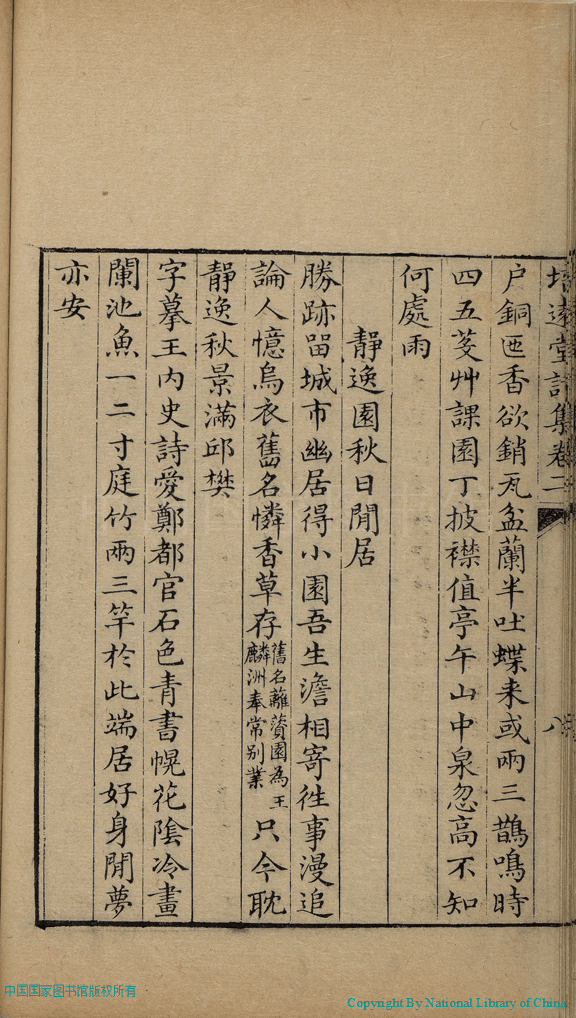 培遠堂詩集卷二
八
户銅匜香欲銷瓦盆蘭半吐蝶来或兩三鵲鳴時
四五芟艸課園丁披襟值亭午山中泉忽高不知
何處雨
靜逸園秋日閒居
勝跡留城市幽居得小園吾生澹相寄徃事漫追
論人憶烏衣舊名憐香草存舊名蘺薋園為王麟洲奉常别業只今耽
靜逸秋景滿邱樊
字摹王内史詩愛鄭都官石色青書幌花陰冷畫
闌池魚一二寸庭竹兩三竿扵此端居好身閒夢
亦安
中国国家图书馆版权所有
Copyright By National Library of China